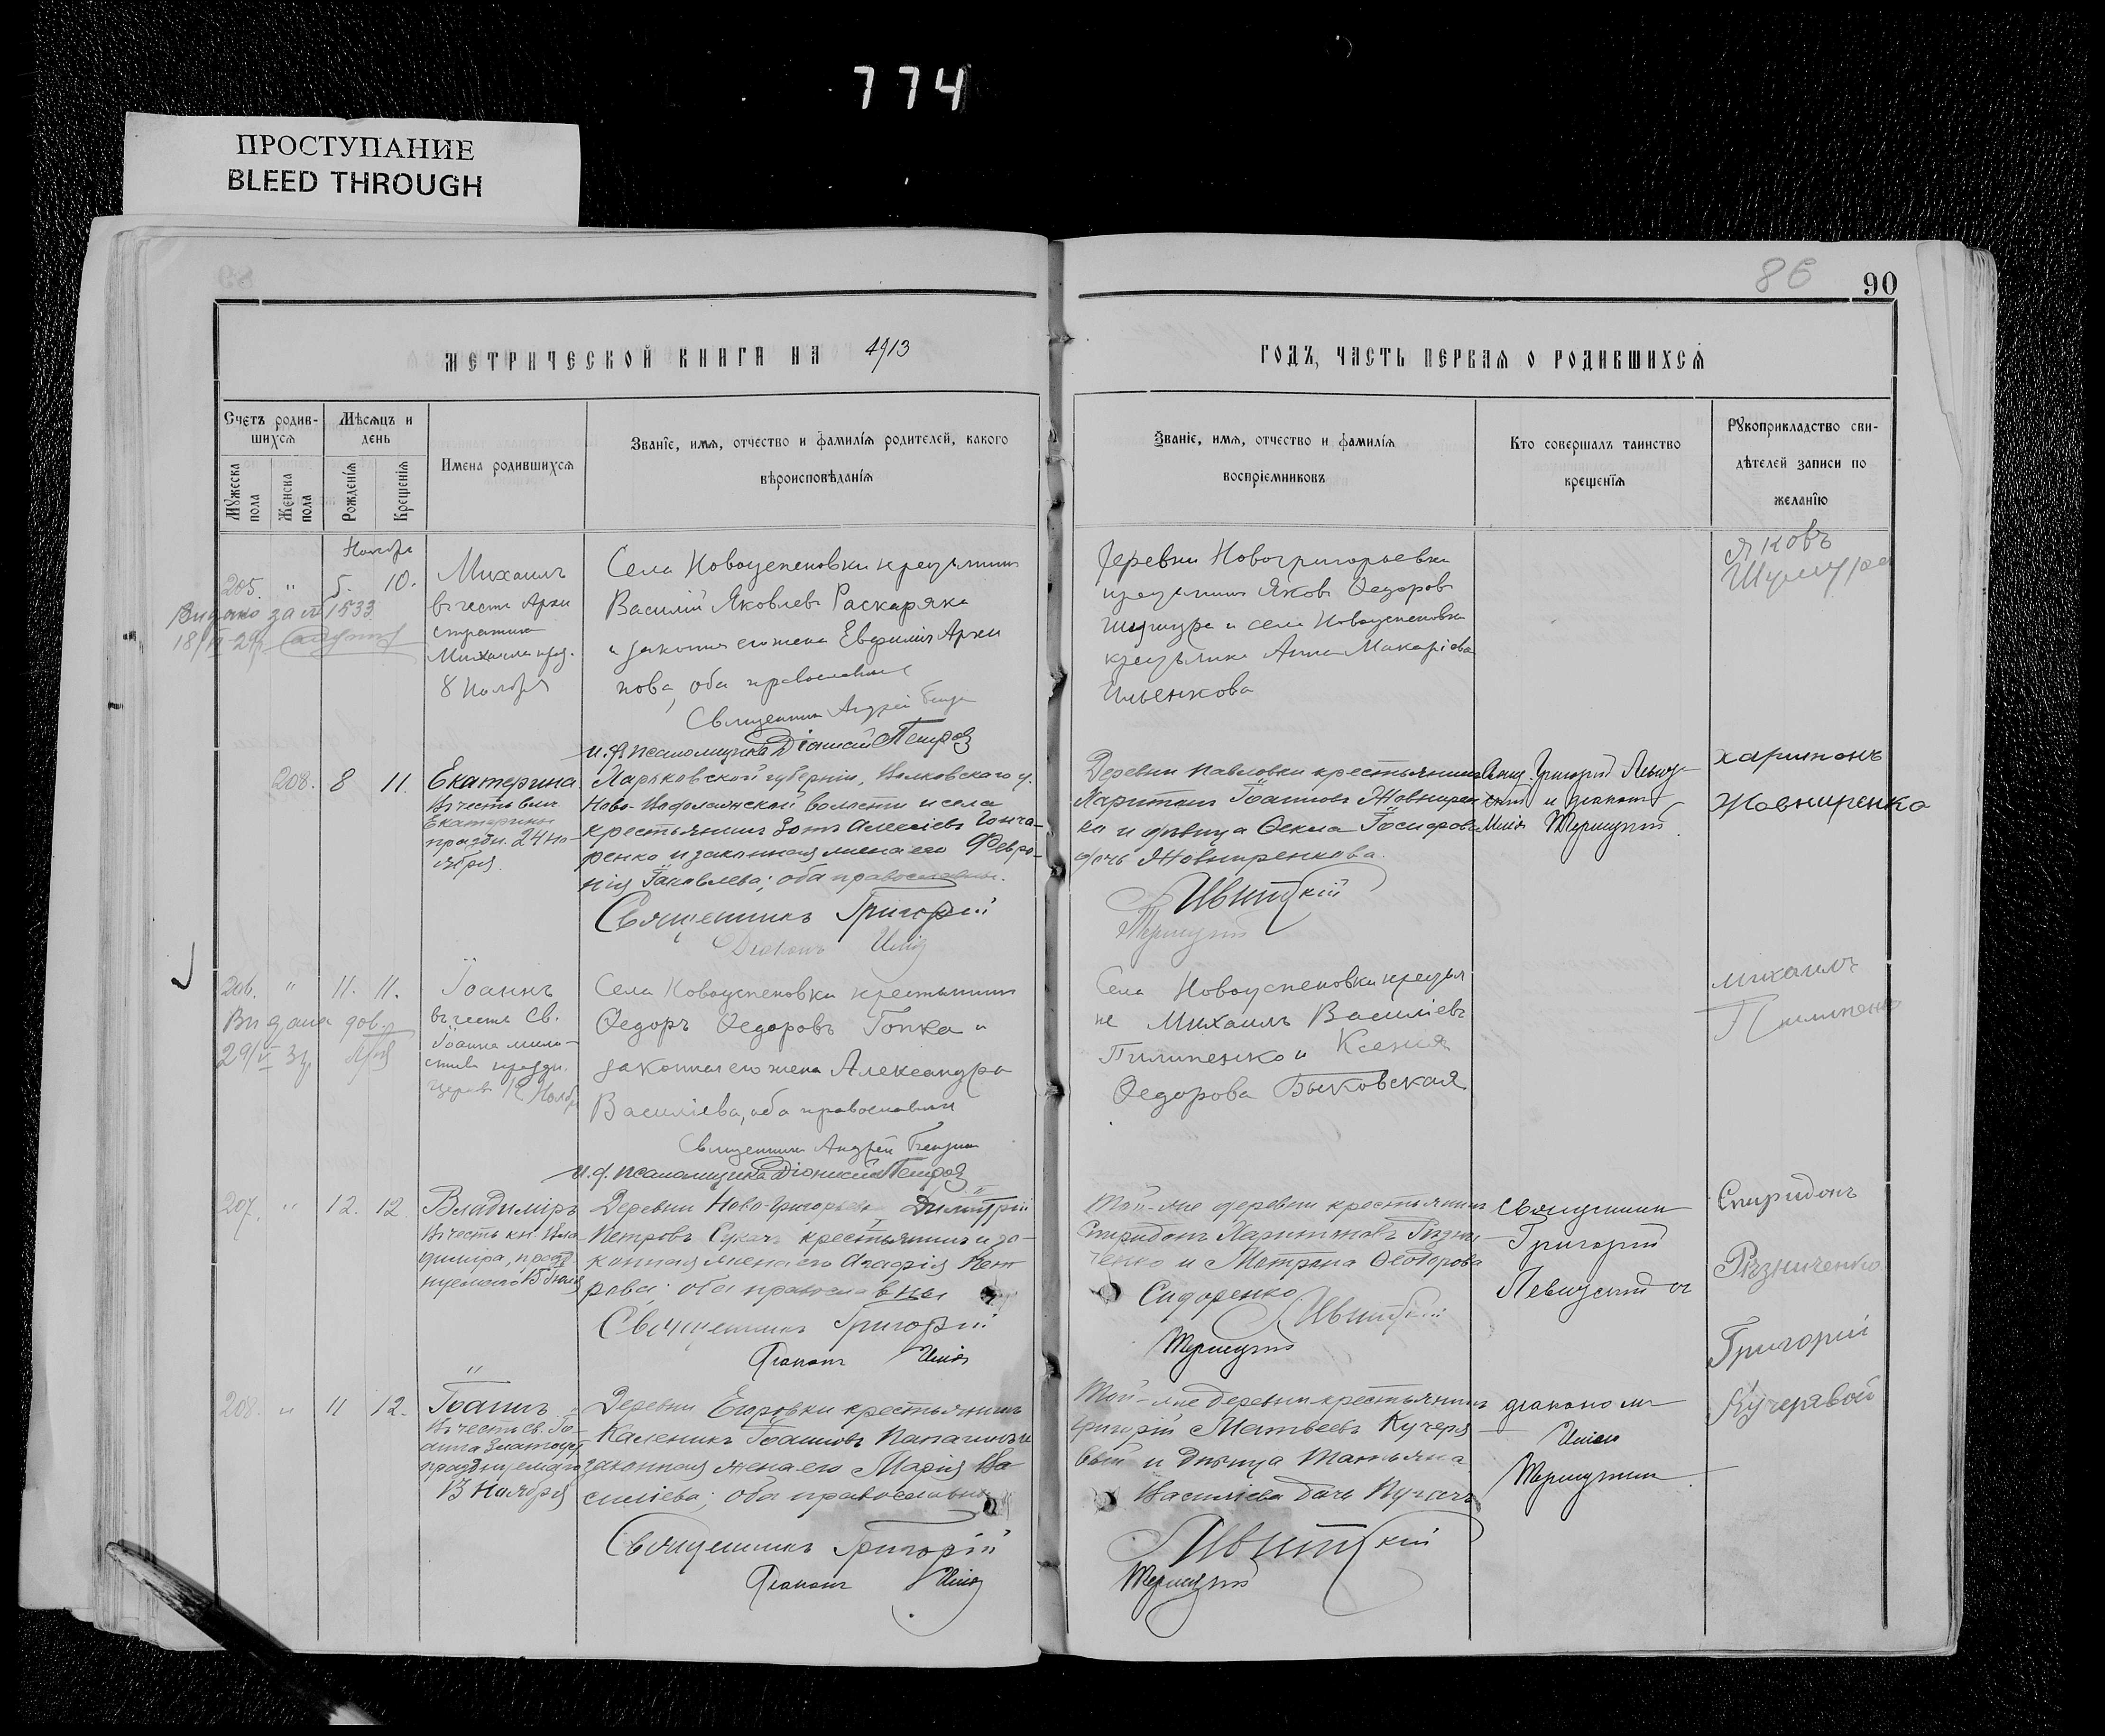 774
ПРОСТУПАНИЕ
BLEED THROUGH
86 90
МЕТРИЧЕСКОЙ КНИГИ НА 1913
ГОДЪ, ЧАСТЬ ПЕРВАЯ О РОДИВШИХСЯ
Счетъ родив-
шихся
Мѣсяцъ и
день
Мужеска
пола
Женска
пола
Рожденія
Крещенія
Имена родившихся
Званіе, имя, отчество и фамилія родителей, какого
вѣроисповѣданія
Званіе, имя, отчество и фамилія
воспріемниковъ
Кто совершалъ таинство
крещенія
Рукоприкладство сви-
дѣтелей записи по
желанію
Ноября
205. " 5. 10.
Видано за № 1533
Михаилъ
въ честь Архи
стратига
Михаила праз.
8 Ноября
Села Новоуспеновки крестьянин
Василій Яковлевъ Раскаряка
и законная его жена Евфимія Архи
пова, оба православные
Священникъ Андрей
и.ф. псаломщика Діонисій Петров
Деревни Новогригорьевки
крестьянин Яковъ Ѳедоровъ
Шумура и села Новоуспеновки
крестьянка Анна Макаріева
Ильенкова
Яковъ
Шумура
208. 8 11.
Екатерина
въ честь влмч
Екатерины
праздн. 24 но-
ября.
Харьковской губерніи, Валковскаго у.
волости и села
крестьянинъ Зотъ Алексіевъ Гонча-
ренко и законная жена его Февро-
нія Іаковлева; оба православны.
Священникъ Григорій
Діаконъ Илія
Деревни Павловки крестьянинъ
Харитонъ Іоанновъ Жовнирен
ко и дѣвица Ѳекла Іосифова
дочь Жовниренкова.
Левитскій
Свящ. Григорій Левиц-
скій и діаконъ
Илія
Харитонъ
Жовниренко
206. " 11. 11.
Видана дов.
Іоаннъ
въ честь Св.
Іоанна мило-
стива праздн.
12 Ноября
Села Новоуспеновки крестьянин
Ѳедоръ Ѳедоровъ Гопка и
законная его жена Александра
Василіева, оба православные
Священникъ Андрей
и.ф. псаломщика Діонисій Петров
Села Новоуспеновки крестья
не Михаилъ Василіевъ
Пилипенко и Ксенія
Ѳедорова Быковская
Михаилъ
Пилипенко
207. " 12. 12.
Владиміръ
въ честь кн. Вла
диміра, празд
нуемаго 15 Іюля
Деревни Ново-Григорьевки Димитрій
Петровъ Сукачъ крестьянинъ и за-
конная жена его Агафія Пет
рова; оба православны
Священникъ Григорій
Діаконъ Илія
Той-же деревни крестьянинъ
Спиридонъ Харитоновъ Різни
ченко и Матрона Ѳеодорова
Сидоренко
Левитскій
Священник
Григорій
Левицкій съ
Спиридонъ
Різниченко
208. " 11 12.
Іоаннъ
въ честь св. Іо-
анна Златоуст
празднуемаго
13 Ноября
Деревни Егоровки крестьянинъ
Каленикъ Іоанновъ
законная жена его Марія Ва
силіева; оба православны
Священникъ Григорій
Діаконъ Илія
Той-же деревни крестьянинъ
Григорій Матвеевъ Кучеря
вый и дѣвица Татьяна
Василіева дочь
Левитскій
діакономъ
Иліею
Григорій
Кучерявой